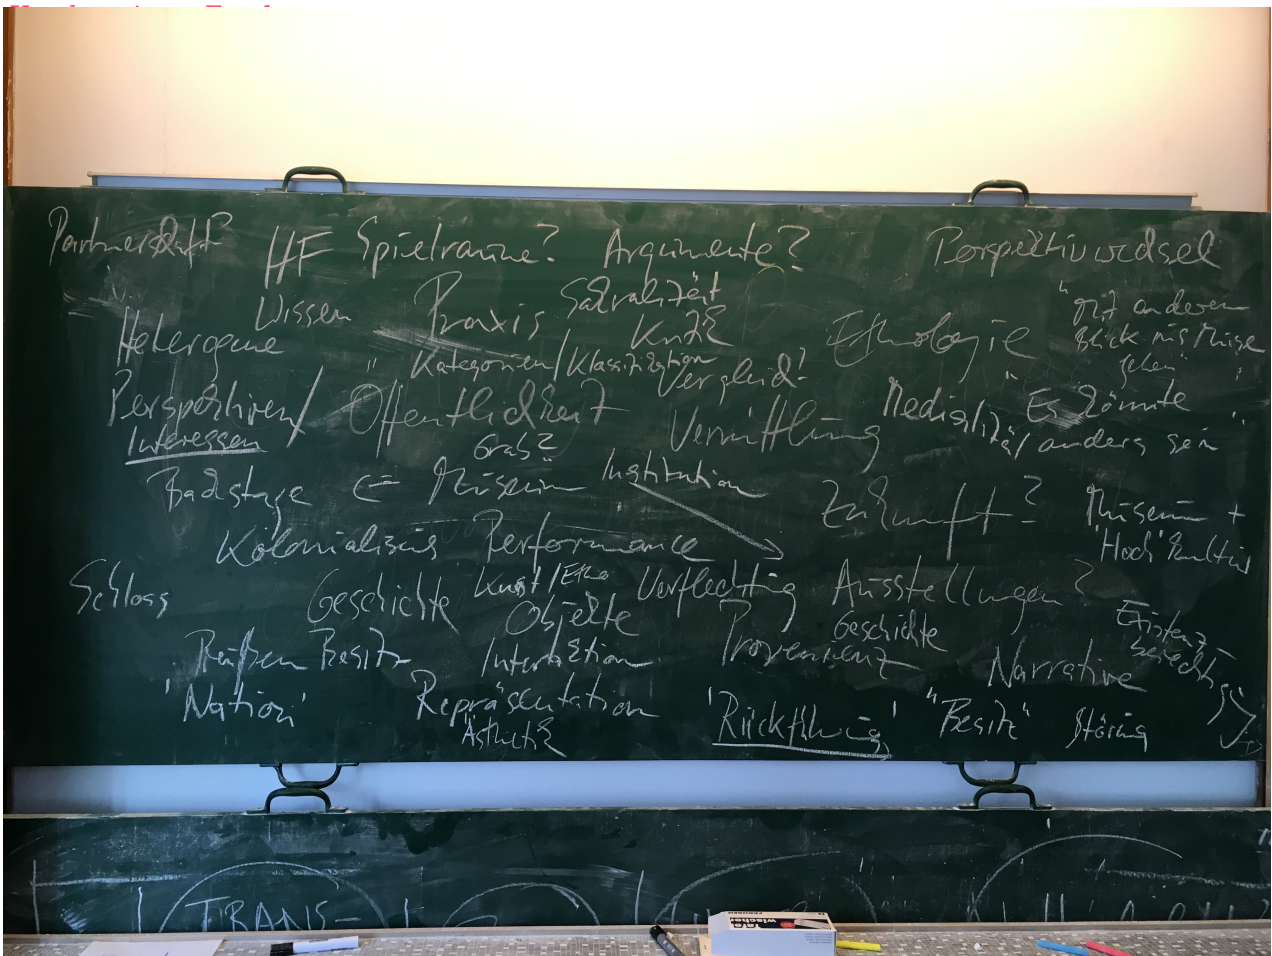 Partnerschaft? HF Spielräume? Argumente? Perspektivwechsel
Wissen Praxis Sakralität
Kritik
"Mit anderem
Blick ins Museum
gehen"
Heterogene
Perspektiven/
Interessen
Kategorien/Klassifikation
Vergleich?
Ethnologie
Öffentlichkeit Vermittlung Medialität/ "Es könnte
anders sein"
Grab?
Backstage Museum Institution Zukunft? Museum +
'Hoch'kultur
Kolonialismus Performance
Schloss Geschichte Kunst/Ethno Verflechtung Ausstellungen?
Objekte Geschichte
Existenz-
berechtigung
Preußen Besitz Interaktion Provenienz Narrative
'Nation' Repräsentation 'Rückführung' "Besitz" Störung
Ästhetik
TRANS-
wischer